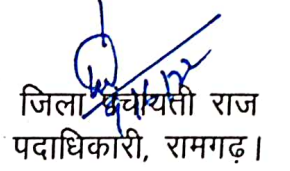 जिला पंचायती राज
पदाधिकारी, रामगढ़।